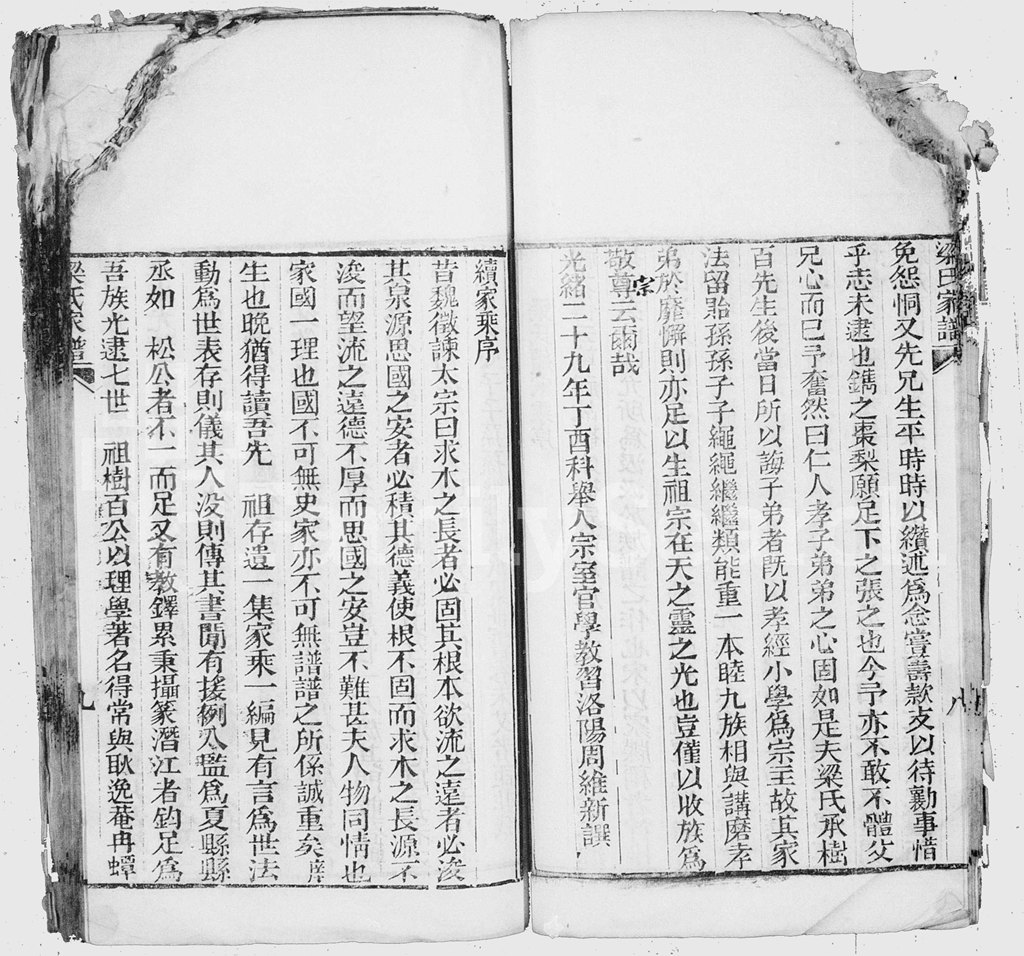 梁氏家譜
八
免怨恫又先兄生平時時以纘述爲念嘗籌款支以待勷事惜
乎志未逮也鐫之棗梨願足下之張之也今予亦不敢不體父
兄心而已予奮然曰仁人孝子弟弟之心固如是夫梁氏承樹
百先生後當日所以誨子弟者既以孝經小學爲宗主故其家
法留貽孫孫子子繩繩繼繼類能重一本睦九族相與講磨孝
弟於靡懈則亦足以生祖宗在天之靈之光也豈僅以收族爲
敬尊宗云爾哉
光緒二十九年丁酉科舉人宗室官學教習洛陽周維新譔
續家乘序
昔魏徵諫太宗曰求木之長者必固其根本欲流之遠者必浚
其泉源思國之安者必積其德義使根不固而求木之長源不
浚而望流之遠德不厚而思國之安豈不難甚夫人物同情也
家國一理也國不可無史家亦不可無譜譜之所係誠重矣
生也晚猶得讀吾先　祖存遺一集家乘一編見有言爲世法
動爲世表存則儀其人没則傳其書間有援例入監爲夏縣縣
丞如　松公者不一而足又有教鐸累秉攝篆潛江者鈞足爲
吾族光逮七世　祖樹百公以理學著名得常與耿逸菴冉蟫
梁氏家譜
九